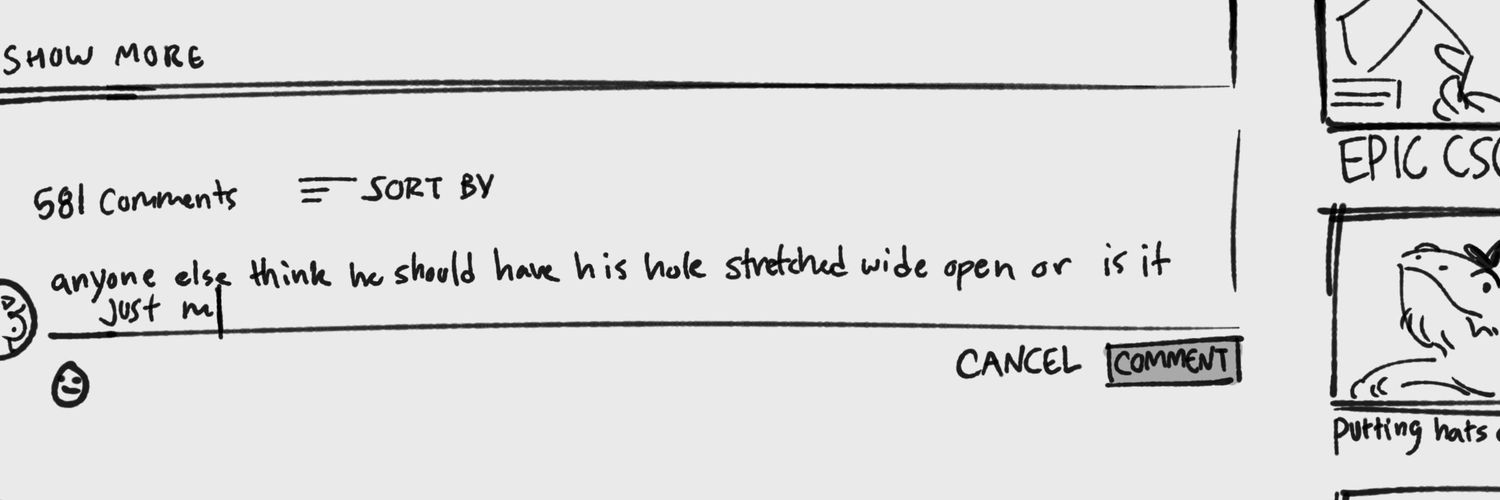 SHOW MORE
581 Comments
SORT BY
anyone else think he should have his hole stretched wide open or is it
just m
CANCEL
COMMENT
EPIC
putting hats